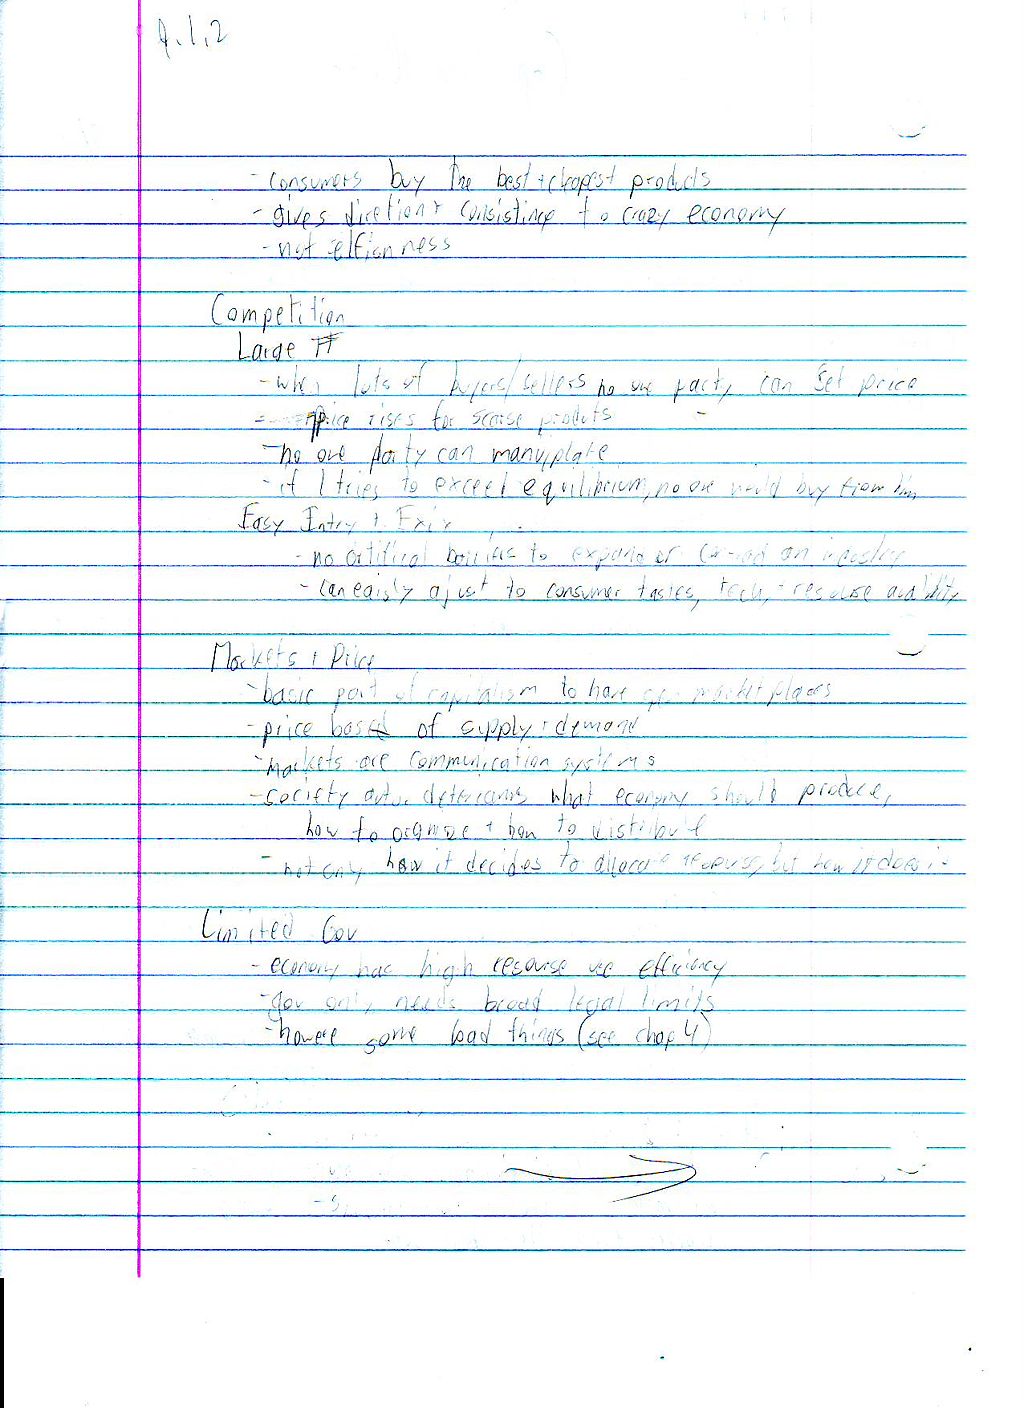 4.1.2
- consumers buy the best + cheapest products
- gives diretion + consistince to crazy economy
- not selfishness
Competition
Large #
- when lots of buyers/sellers no one party can set price
- price rises for scarse products
- no one party can manuiplate
- if 1 tries to exceed equilibrium, no one would buy from him
Easy Entry + Exit
- no artifical barriers to expand or an industry
- can eaisly ajust to consumer tastes, tech, + resourse
Markets + Price
- basic part of capitalism to have market places
- price based of supply + demand
- markets are communication systems
- society what economy should produce,
how to organize + how to distribute
- not only how it decides to allocate but how it does it
Limited Gov
- economy has high resourse use efficiency
- gov only needs broad legal limits
- however some bad things (see chap 4)